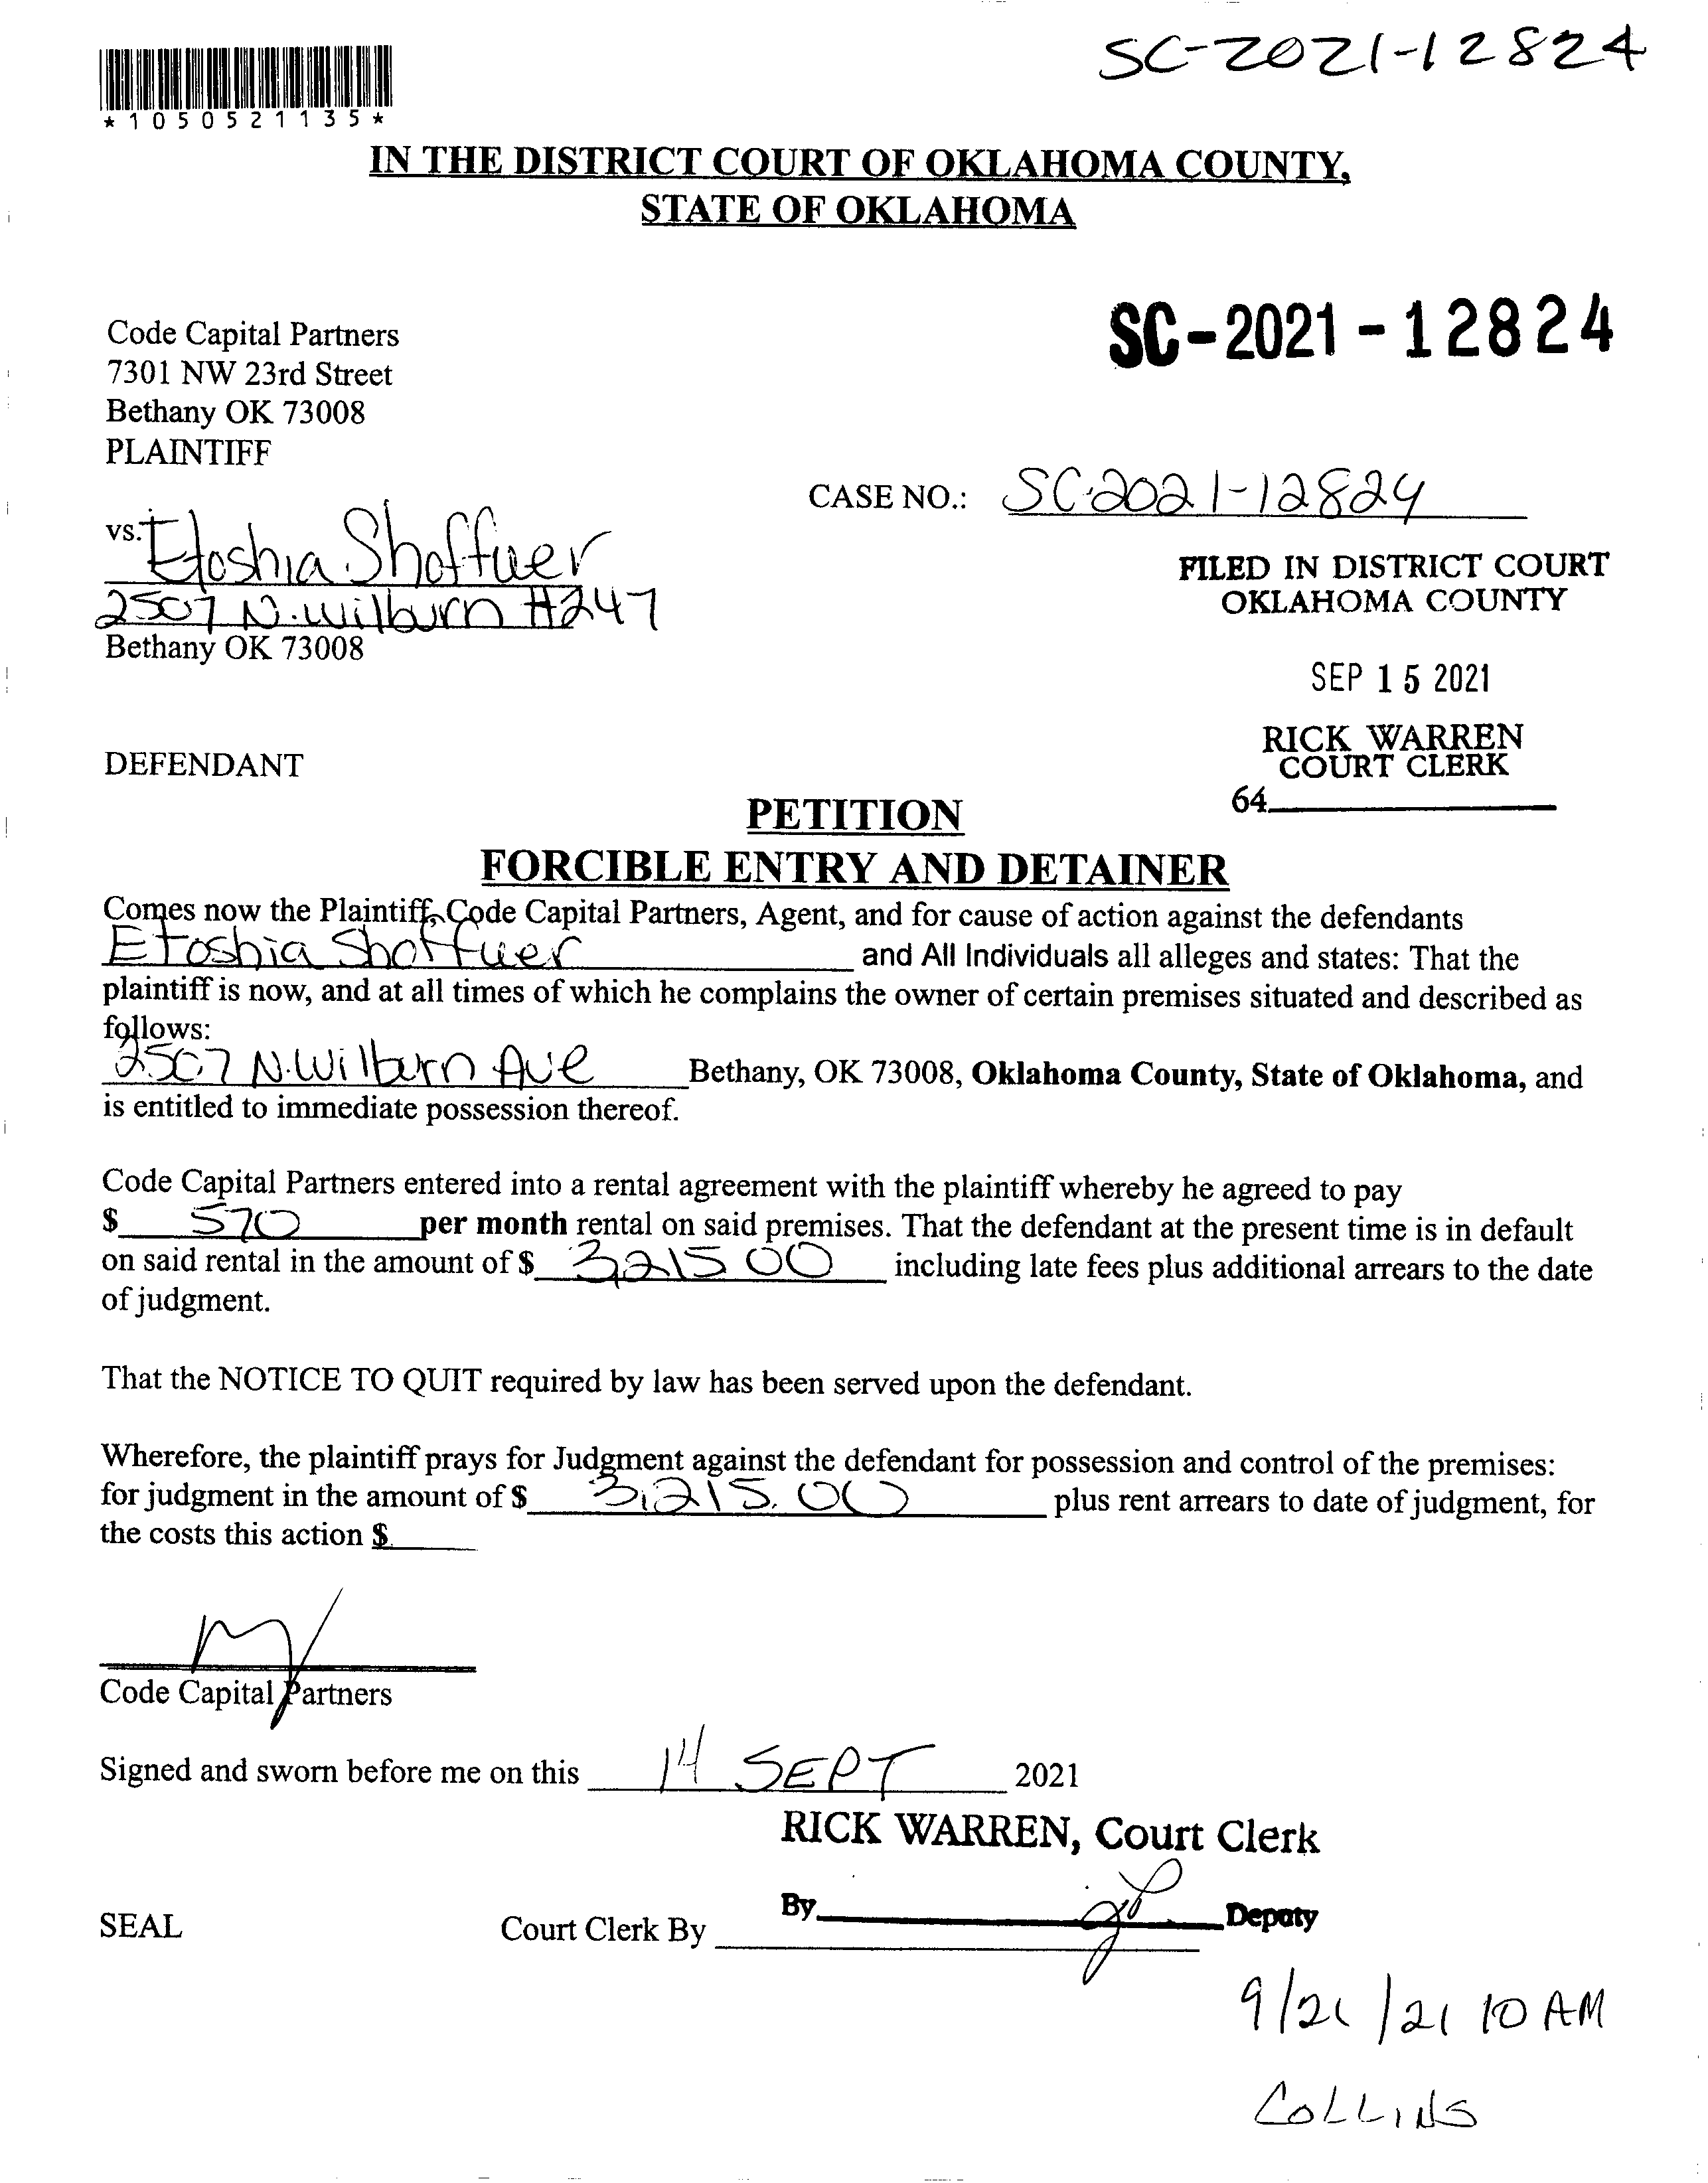 SC-2021-12824
*1050521135*
IN THE DISTRICT COURT OF OKLAHOMA COUNTY,
STATE OF OKLAHOMA
Code Capital Partners
7301 NW 23rd Street
Bethany OK 73008
PLAINTIFF
SC-2021-12824
CASE NO.: SC-2021-12824
vs. Etoshia
2507 N. Wilburn #247
Bethany OK 73008
FILED IN DISTRICT COURT
OKLAHOMA COUNTY
SEP 15 2021
RICK WARREN
COURT CLERK
64
DEFENDANT
PETITION
FORCIBLE ENTRY AND DETAINER
Comes now the Plaintiff, Code Capital Partners, Agent, and for cause of action against the defendants
Etoshia and All Individuals all alleges and states: That the
plaintiff is now, and at all times of which he complains the owner of certain premises situated and described as
follows:
2507 N. Wilburn Ave Bethany, OK 73008, Oklahoma County, State of Oklahoma, and
is entitled to immediate possession thereof.
Code Capital Partners entered into a rental agreement with the plaintiff whereby he agreed to pay
$ 570 per month rental on said premises. That the defendant at the present time is in default
on said rental in the amount of $ 3,215 00 including late fees plus additional arrears to the date
of judgment.
That the NOTICE TO QUIT required by law has been served upon the defendant.
Wherefore, the plaintiff prays for Judgment against the defendant for possession and control of the premises:
for judgment in the amount of $ 3,215.00 plus rent arrears to date of judgment, for
the costs this action $
Code Capital Partners
Signed and sworn before me on this 14 SEPT 2021
RICK WARREN, Court Clerk
By Deputy
SEAL Court Clerk By
9/21/21 10 AM
COLLINS